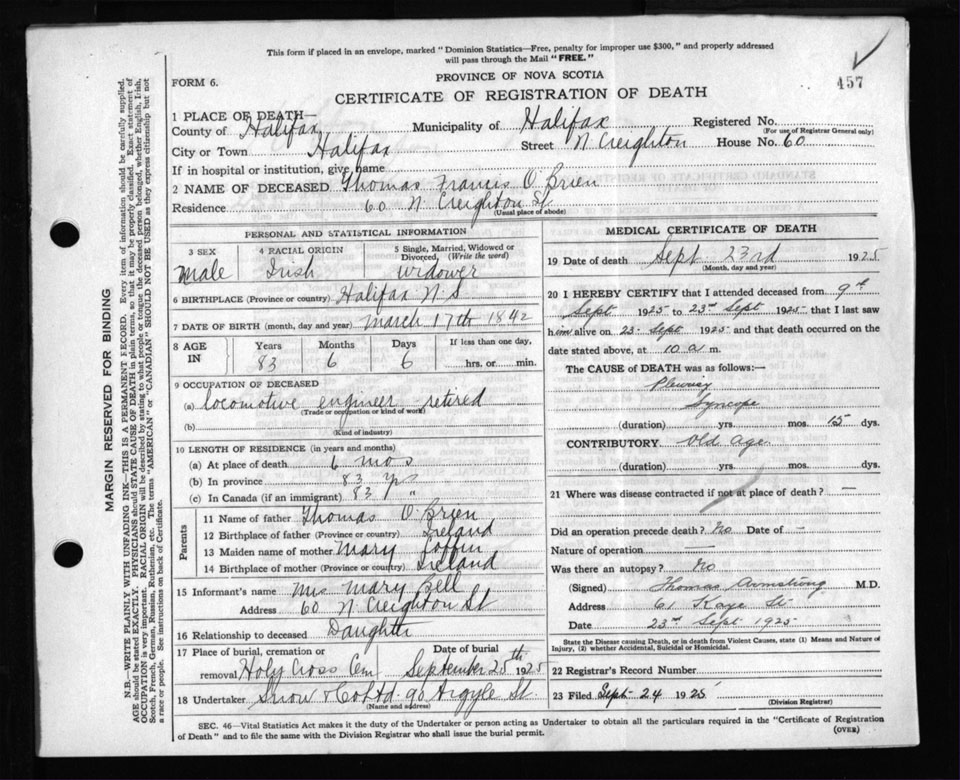 This form if placed in an envelope, marked "Dominion Statistics—Free, penalty for improper use $300," and properly addressed
will pass through the Mail "FREE."
457
FORM 6.
PROVINCE OF NOVA SCOTIA
CERTIFICATE OF REGISTRATION OF DEATH
1 PLACE OF DEATH—
County of Halifax Municipality of Halifax Registered No.
(For use of Registrar General only)
City or Town Halifax Street N Creighton House No. 60
If in hospital or institution, give name
2 NAME OF DECEASED Thomas Francis O'Brien
Residence 60 N. Creighton St
(Usual place of abode)
PERSONAL AND STATISTICAL INFORMATION
3 SEX
Male
4 RACIAL ORIGIN
Irish
5 Single, Married, Widowed or
Divorced, (Write the word)
widower
6 BIRTHPLACE (Province or country) Halifax N.S.
7 DATE OF BIRTH (month, day and year) March 17th 1842
8 AGE IN
Years Months Days If less than one day,
83 6 6 hrs. or min.
9 OCCUPATION OF DECEASED
(a) locomotive engineer retired
(Trade or occupation or kind of work)
(b)
(Kind of industry)
10 LENGTH OF RESIDENCE (in years and months)
(a) At place of death 6 mos
(b) In province 83 yrs
(c) In Canada (if an immigrant) 83 "
Parents
11 Name of father Thomas O'Brien
12 Birthplace of father (Province or country) Ireland
13 Maiden name of mother Mary
14 Birthplace of mother (Province or country) Ireland
15 Informant's name Mrs Mary Bell
Address 60 N Creighton St
16 Relationship to deceased Daughter
17 Place of burial, cremation or Date of burial
removal Holy Cross Cem September 25th 1925
18 Undertaker Snow & Co Ltd. 90 Argyle St.
(Name and address)
MEDICAL CERTIFICATE OF DEATH
19 Date of death Sept 23rd 1925
(Month, day and year)
20 I HEREBY CERTIFY that I attended deceased from 9th
Sept 1925 to 23rd Sept 1925 that I last saw
him alive on 23 Sept 1925 and that death occurred on
the date stated above, at 10 a m.
The CAUSE of DEATH was as follows:—
Pleurisy
Syncope
(duration) yrs. mos. 15 dys.
CONTRIBUTORY Old Age
(duration) yrs. mos. dys.
21 Where was disease contracted if not at place of death? —
Did an operation precede death? No Date of —
Nature of operation —
Was there an autopsy? No
(Signed) Thomas Armstrong M.D.
Address 61 Kaye St
Date 23rd Sept 1925
State the Disease causing Death, or in death from Violent Causes, state (1) Means and Nature of
Injury, (2) whether Accidental, Suicidal or Homicidal.
22 Registrar's Record Number
23 Filed Sept 24 1925
(Division Registrar)
SEC. 46—Vital Statistics Act makes it the duty of the Undertaker or person acting as Undertaker to obtain all the particulars required in the "Certificate of Registration
of Death" and to file the same with the Division Registrar who shall issue the burial permit.
(OVER)
MARGIN RESERVED FOR BINDING
N.B.—WRITE PLAINLY WITH UNFADING INK—THIS IS A PERMANENT RECORD. Every item of information should be carefully supplied.
AGE should be stated EXACTLY. PHYSICIANS should STATE CAUSE OF DEATH in plain terms, so that it may be properly classified. Exact statement of
OCCUPATION is very important. RACIAL ORIGIN will be described by stating to what people or tongue the deceased person belonged, whether English, Irish,
Scotch, French, German, Russian, Ruthenian, etc. The terms "AMERICAN" or "CANADIAN" SHOULD NOT BE USED as they express citizenship but not
a race or people. See instructions on back of Certificate.